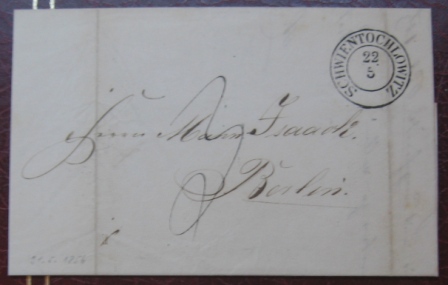 SCHWIENTOCHLOWITZ
22
5
Herrn Isaack
Berlin.